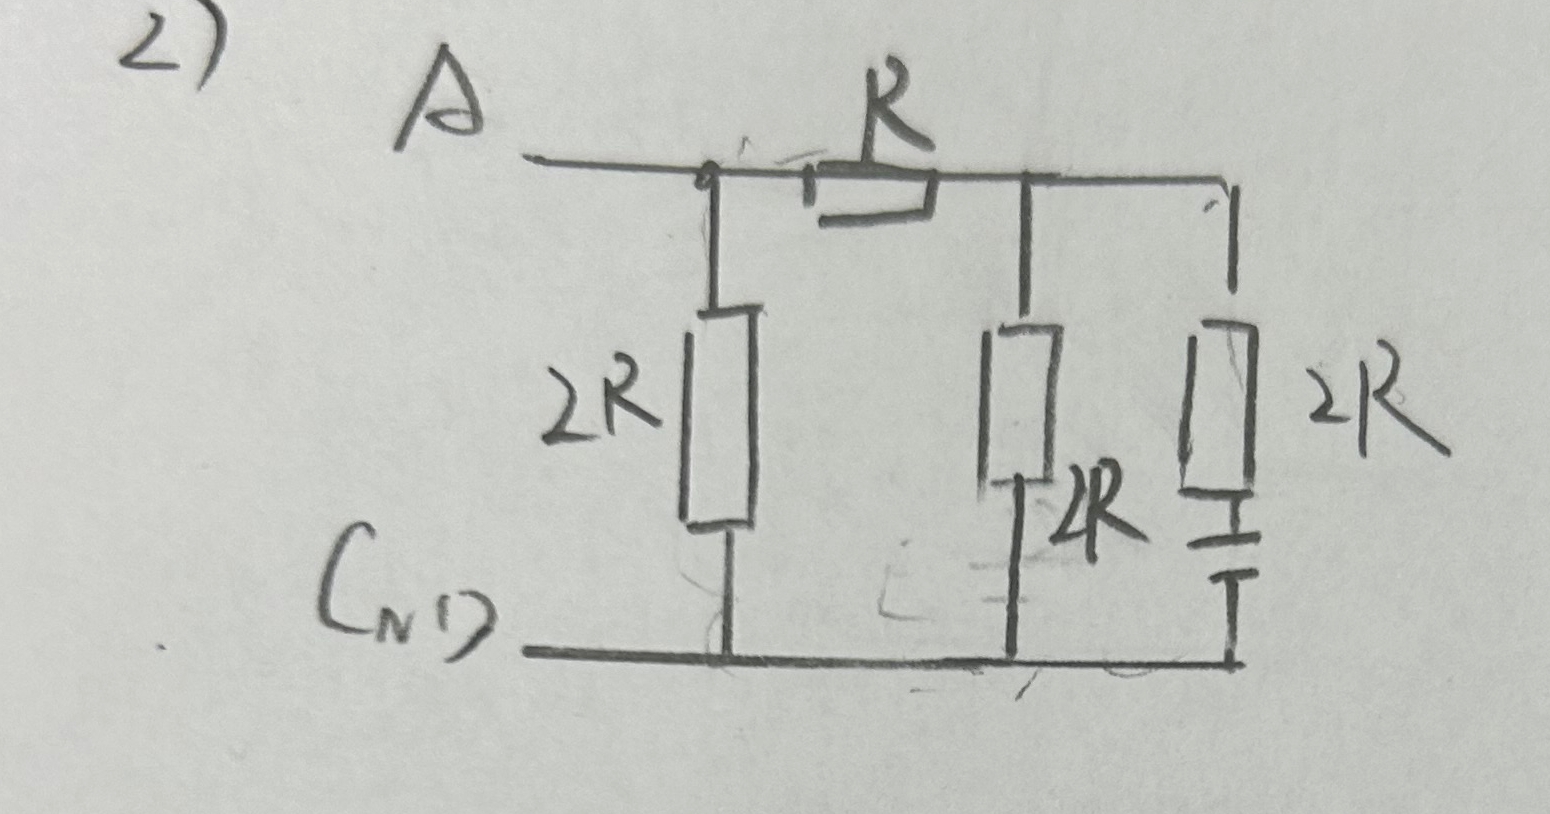 2)
A
R
2R
2R
2R
GND